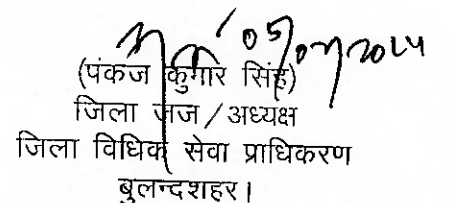 05/07/2024
(पंकज कुमार सिंह)
जिला जज / अध्यक्ष
जिला विधिक सेवा प्राधिकरण
बुलन्दशहर।